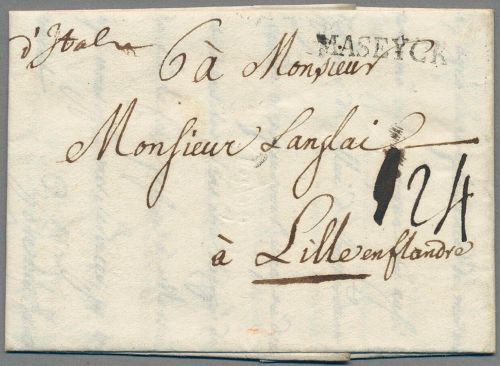 d'Ital
6 à Monsieur
MASEYCK
Monsieur Langlai
24
à Lille en flandre